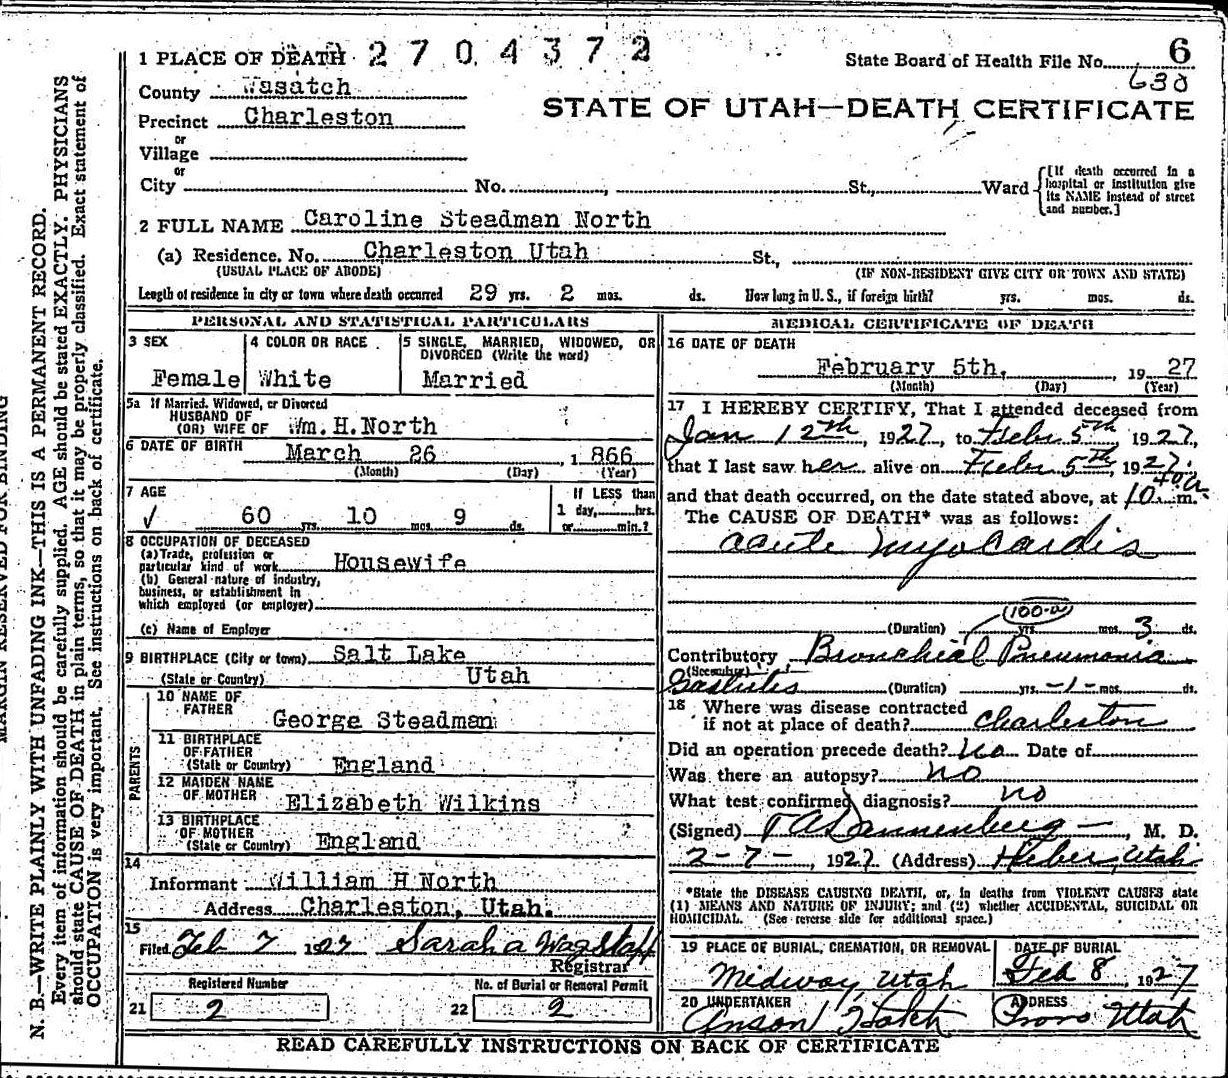 1 PLACE OF DEATH 2704372
State Board of Health File No. 6
630
County Wasatch
STATE OF UTAH—DEATH CERTIFICATE
Precinct Charleston
or
Village
or
City No. , St., Ward
[If death occurred in a
hospital or institution give
its NAME instead of street
and number.]
2 FULL NAME Caroline Steadman North
(a) Residence. No. Charleston Utah St.,
(USUAL PLACE OF ABODE) (IF NON-RESIDENT GIVE CITY OR TOWN AND STATE)
Length of residence in city or town where death occurred 29 yrs. 2 mos. ds. How long in U. S., if foreign birth? yrs. mos. ds.
PERSONAL AND STATISTICAL PARTICULARS
3 SEX
Female
4 COLOR OR RACE
White
5 SINGLE, MARRIED, WIDOWED, OR
DIVORCED (Write the word)
Married
5a If Married, Widowed, or Divorced
HUSBAND OF
(OR) WIFE OF Wm. H. North
6 DATE OF BIRTH March 26, 1866
(Month) (Day) (Year)
7 AGE
60 yrs. 10 mos. 9 ds.
If LESS than
1 day, hrs.
or min.?
8 OCCUPATION OF DECEASED
(a) Trade, profession or
particular kind of work Housewife
(b) General nature of industry,
business, or establishment in
which employed (or employer)
(c) Name of Employer
9 BIRTHPLACE (City or town) Salt Lake
(State or Country) Utah
PARENTS
10 NAME OF
FATHER
George Steadman
11 BIRTHPLACE
OF FATHER
(State or Country) England
12 MAIDEN NAME
OF MOTHER Elizabeth Wilkins
13 BIRTHPLACE
OF MOTHER
(State or Country) England
14
Informant William H North
Address Charleston, Utah.
15
Filed Feb 7 1927 Sarah a Wagstaff
Registrar
Registered Number
21 2
No. of Burial or Removal Permit
22 2
MEDICAL CERTIFICATE OF DEATH
16 DATE OF DEATH
February 5th, 1927
(Month) (Day) (Year)
17 I HEREBY CERTIFY, That I attended deceased from
Jan 12th, 1927, to Feb 5th, 1927,
that I last saw her alive on Feb 5th, 1927.
and that death occurred, on the date stated above, at 10 40 a m.
The CAUSE OF DEATH* was as follows:
acute myocardis
(100-a)
(Duration) yrs. mos. 3 ds.
Contributory Bronchial Pneumonia
(Secondary)
(Duration) yrs. -1- mos. ds.
18 Where was disease contracted
if not at place of death? Charleston
Did an operation precede death? No Date of
Was there an autopsy? no
What test confirmed diagnosis? no
(Signed) Dannenberg, M. D.
2-7-1927. (Address) Heber, Utah
*State the DISEASE CAUSING DEATH, or, in deaths from VIOLENT CAUSES state
(1) MEANS AND NATURE OF INJURY; and (2) whether ACCIDENTAL, SUICIDAL OR
HOMICIDAL. (See reverse side for additional space.)
19 PLACE OF BURIAL, CREMATION, OR REMOVAL
Midway, Utah
DATE OF BURIAL
Feb 8 1927
20 UNDERTAKER
Anson Hatch
ADDRESS
Provo Utah
READ CAREFULLY INSTRUCTIONS ON BACK OF CERTIFICATE
MARGIN RESERVED FOR BINDING
N. B.—WRITE PLAINLY WITH UNFADING INK—THIS IS A PERMANENT RECORD.
Every item of information should be carefully supplied. AGE should be stated EXACTLY. PHYSICIANS
should state CAUSE OF DEATH in plain terms, so that it may be properly classified. Exact statement of
OCCUPATION is very important. See instructions on back of certificate.